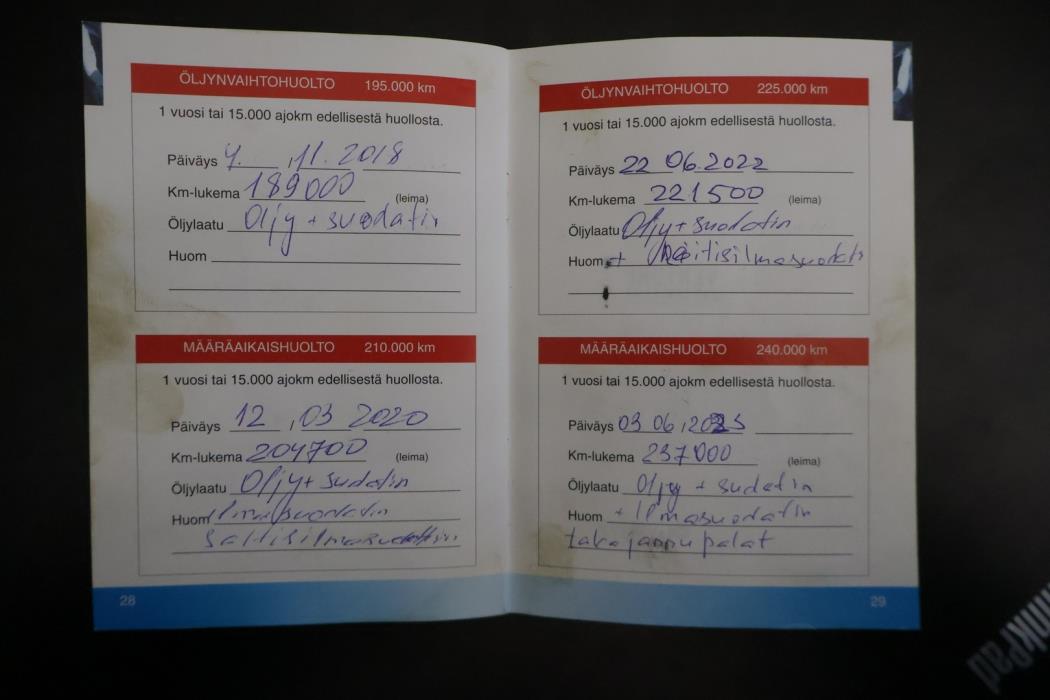 ÖLJYNVAIHTOHUOLTO 195.000 km
1 vuosi tai 15.000 ajokm edellisestä huollosta.
Päiväys 4. , 11. 2018
Km-lukema 189000 (leima)
Öljylaatu Oljy + suodatin
Huom
MÄÄRÄAIKAISHUOLTO 210.000 km
1 vuosi tai 15.000 ajokm edellisestä huollosta.
Päiväys 12 , 03 2020
Km-lukema 204700 (leima)
Öljylaatu Oljy + sudatin
Huom Ilmasuodatin
28
ÖLJYNVAIHTOHUOLTO 225.000 km
1 vuosi tai 15.000 ajokm edellisestä huollosta.
Päiväys 22 06.2022
Km-lukema 221500 (leima)
Öljylaatu Oljy + suodatin
Huom +
MÄÄRÄAIKAISHUOLTO 240.000 km
1 vuosi tai 15.000 ajokm edellisestä huollosta.
Päiväys 03 06 ,
Km-lukema 237000 (leima)
Öljylaatu Oljy + sudatin
Huom + Ilmasuodatin
takajarrupalat
29